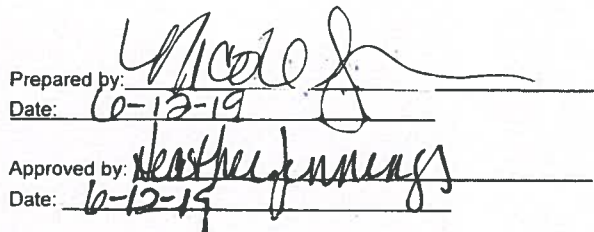 Prepared by: Nicole
Date: 6-12-19
Approved by: Heather Jennings
Date: 6-12-19